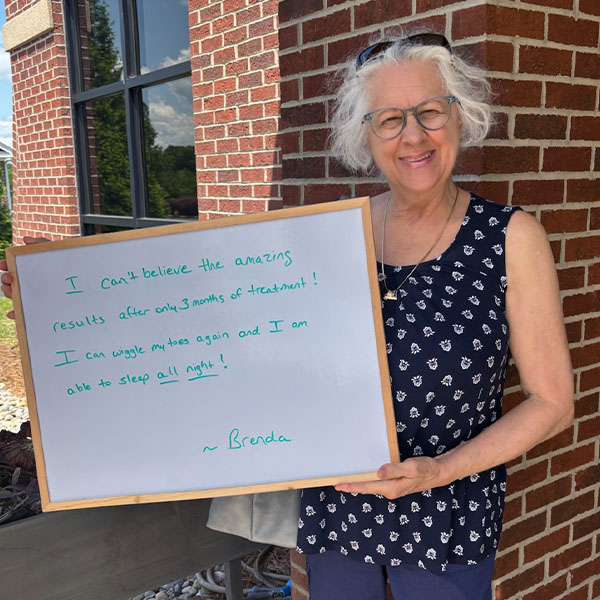 I can't believe the amazing
results after only 3 months of treatment!
I can wiggle my toes again and I am
able to sleep all night!
~ Brenda